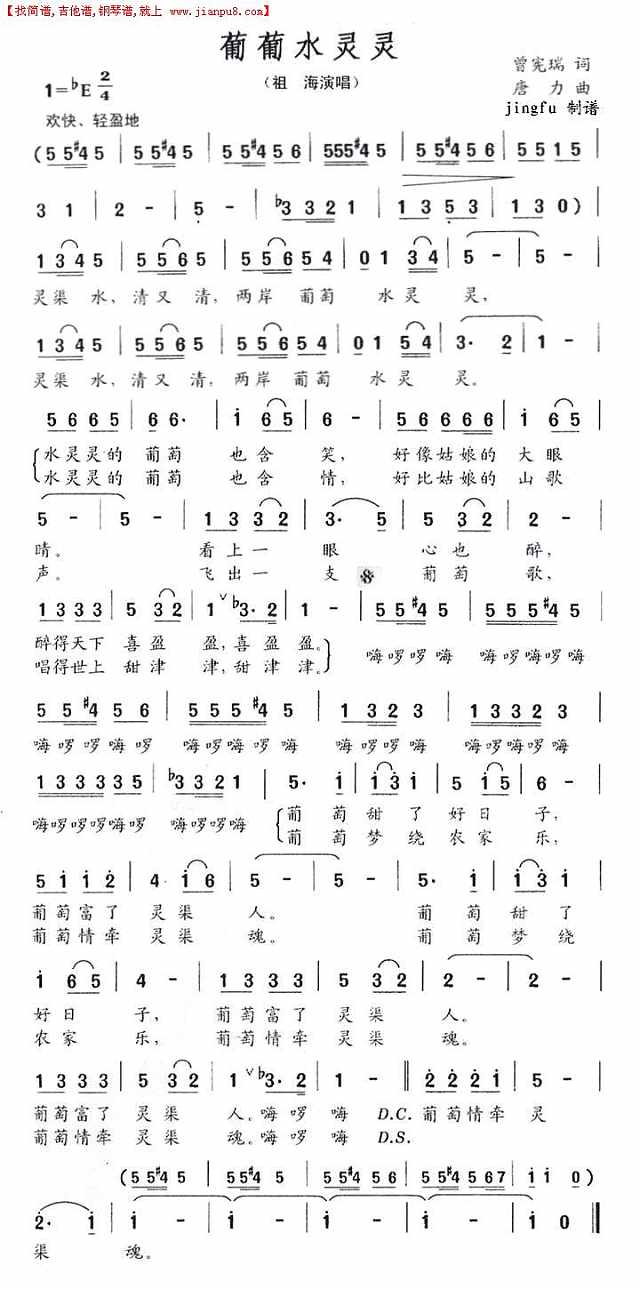 【找简谱,吉他谱,钢琴谱,就上 www.jianpu8.com】
葡萄水灵灵
1=♭E 2/4
（祖 海演唱）
曾宪瑞 词
唐 力 曲
jingfu 制谱
欢快、轻盈地
(5 5#4 5 | 5 5#4 5 | 5 5#4 5 5 | 555#4 5 | 5 5#4 5 5 | 5 5 1 5 |
3 1 | 2 - | 5 - | ♭3 3 2 1 | 1 3 5 3 | 1 3 0) |
1 3 4 5 5 | 5 5 6 5 | 5 5 6 5 4 5 | 0 1 3 4 | 5 - | 5 - |
灵渠 水，清又 清，两岸 葡萄 水灵 灵，
1 3 4 5 5 | 5 5 6 5 | 5 5 6 5 4 5 | 0 0 1 5 4 | 3· 2 | 1 - |
灵渠 水，清又 清，两岸 葡萄 水灵 灵。
5 6 6 5 | 6 6· | i 6 5 | 6 - | 5 6 6 6 6 | i 6 5 |
水灵灵的 葡萄 也含 笑， 好像姑娘的 大眼
水灵灵的 葡萄 也含 情， 好比姑娘的 山歌
5 - | 5 - | 1 3 3 2 | 3· 5 | 5 3 2 | 2 - |
睛。 看上一 眼 心也 醉，
声。 飞出一 支 葡萄 歌，
1 3 3 3 | 5 3 2 | 1 ♭3· 2 | 1 - | 5 5#4 5 | 5 5 5#4 5 |
醉得天下 喜盈 盈，喜盈 盈。 嗨啰啰嗨 嗨啰嗨啰嗨
唱得世上 甜津 津，甜津 津。
5 5#4 5 6 | 5 5 5#4 5 | 1 3 3 2 3 | 1 3 3 2 3 |
嗨啰啰嗨啰 嗨啰嗨啰嗨 嗨啰啰嗨啰 嗨啰啰嗨嗨
1 3 3 3 3 | ♭3 3 2 1 | 5· i | i 3 i | 5 i 5 | 6 - |
嗨啰啰啰啰 嗨啰啰嗨 葡 萄甜 了 好日 子，
葡 萄梦 绕 农家 乐，
5 i i 2 | 4· i 6 | 5 - | 5 - | 5· i | i 3 i |
葡萄富了 灵渠 人。 葡 萄 甜 了
葡萄情牵 灵渠 魂。 葡 萄 梦 绕
i 6 5 | 4 - | 1 3 3 3 | 5 3 2 | 2 - | 2 - |
好日 子， 葡萄富了 灵渠 人。
农家 乐， 葡萄情牵 灵渠 魂。
1 3 3 3 | 5 3 2 | 1 ♭3· 2 | 1 - || 2 2 2 i | 5 - |
葡萄富了 灵渠 人。嗨啰 嗨 D.C. 葡萄情牵 灵
葡萄情牵 灵渠 魂。嗨啰 嗨 D.S.
(5 5#4 5 | 5 5#4 5 | 5 5#4 5 6 | 5 5#4 5 6 | 5 5#4 5 6 7 | i i 0)
2· i | i - | i - | i - | i - | i 0 ‖
渠 魂。